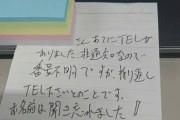 さん あてに TELが
ありました。非通知なので
番号不明ですが、折り返し
TEL下さいとのことです。
お名前は聞き忘れました!